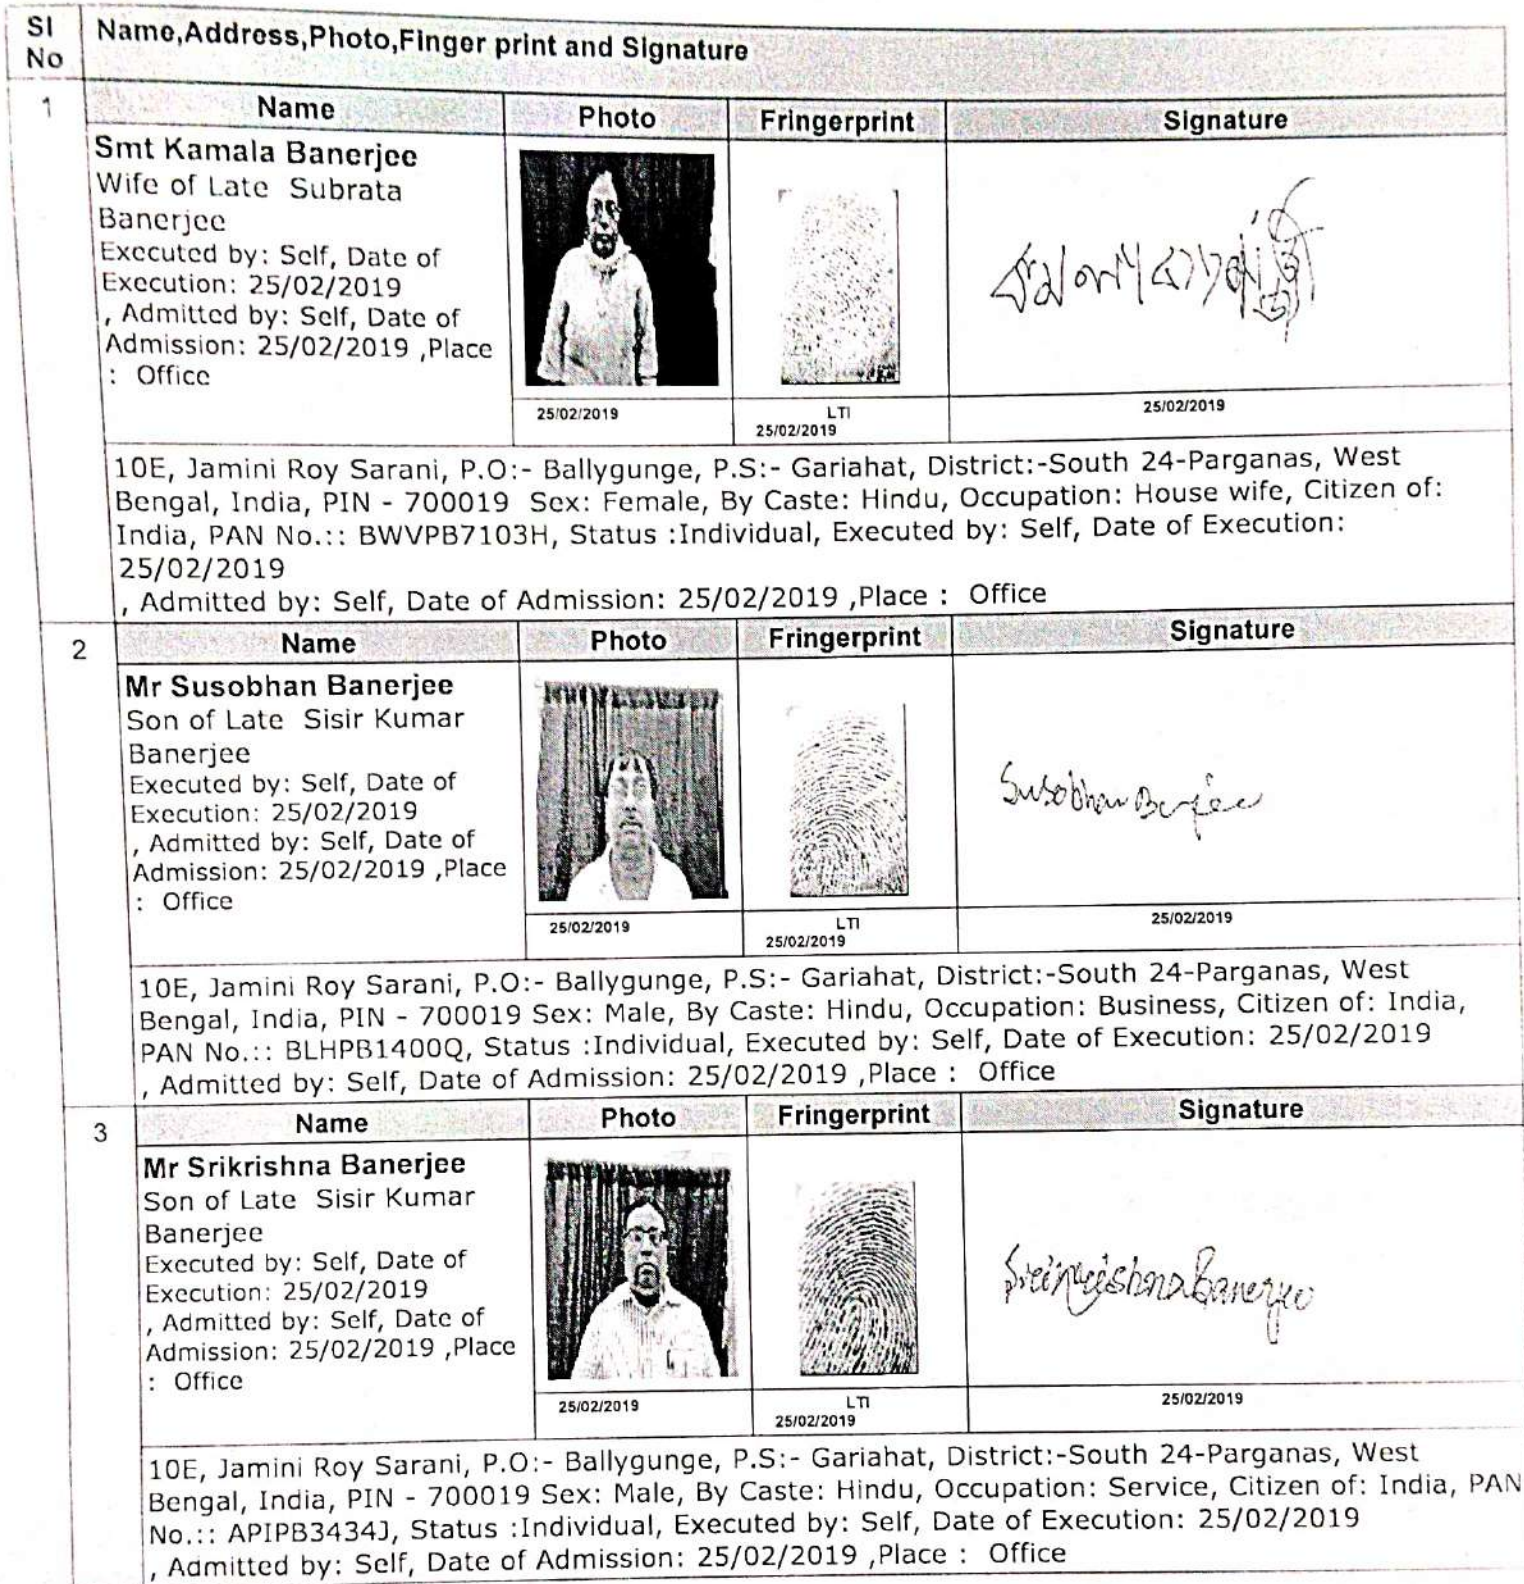 Sl No
Name,Address,Photo,Finger print and Signature
1
Name
Photo
Fringerprint
Signature
Smt Kamala Banerjee
Wife of Late Subrata
Banerjee
Executed by: Self, Date of
Execution: 25/02/2019
, Admitted by: Self, Date of
Admission: 25/02/2019 ,Place
: Office
25/02/2019
LTI
25/02/2019
25/02/2019
10E, Jamini Roy Sarani, P.O:- Ballygunge, P.S:- Gariahat, District:-South 24-Parganas, West
Bengal, India, PIN - 700019 Sex: Female, By Caste: Hindu, Occupation: House wife, Citizen of:
India, PAN No.:: BWVPB7103H, Status :Individual, Executed by: Self, Date of Execution:
25/02/2019
, Admitted by: Self, Date of Admission: 25/02/2019 ,Place : Office
2
Name
Photo
Fringerprint
Signature
Mr Susobhan Banerjee
Son of Late Sisir Kumar
Banerjee
Executed by: Self, Date of
Execution: 25/02/2019
, Admitted by: Self, Date of
Admission: 25/02/2019 ,Place
: Office
Susobhan Banerjee
25/02/2019
LTI
25/02/2019
25/02/2019
10E, Jamini Roy Sarani, P.O:- Ballygunge, P.S:- Gariahat, District:-South 24-Parganas, West
Bengal, India, PIN - 700019 Sex: Male, By Caste: Hindu, Occupation: Business, Citizen of: India,
PAN No.:: BLHPB1400Q, Status :Individual, Executed by: Self, Date of Execution: 25/02/2019
, Admitted by: Self, Date of Admission: 25/02/2019 ,Place : Office
3
Name
Photo
Fringerprint
Signature
Mr Srikrishna Banerjee
Son of Late Sisir Kumar
Banerjee
Executed by: Self, Date of
Execution: 25/02/2019
, Admitted by: Self, Date of
Admission: 25/02/2019 ,Place
: Office
Banerjee
25/02/2019
LTI
25/02/2019
25/02/2019
10E, Jamini Roy Sarani, P.O:- Ballygunge, P.S:- Gariahat, District:-South 24-Parganas, West
Bengal, India, PIN - 700019 Sex: Male, By Caste: Hindu, Occupation: Service, Citizen of: India, PAN
No.:: APIPB3434J, Status :Individual, Executed by: Self, Date of Execution: 25/02/2019
, Admitted by: Self, Date of Admission: 25/02/2019 ,Place : Office